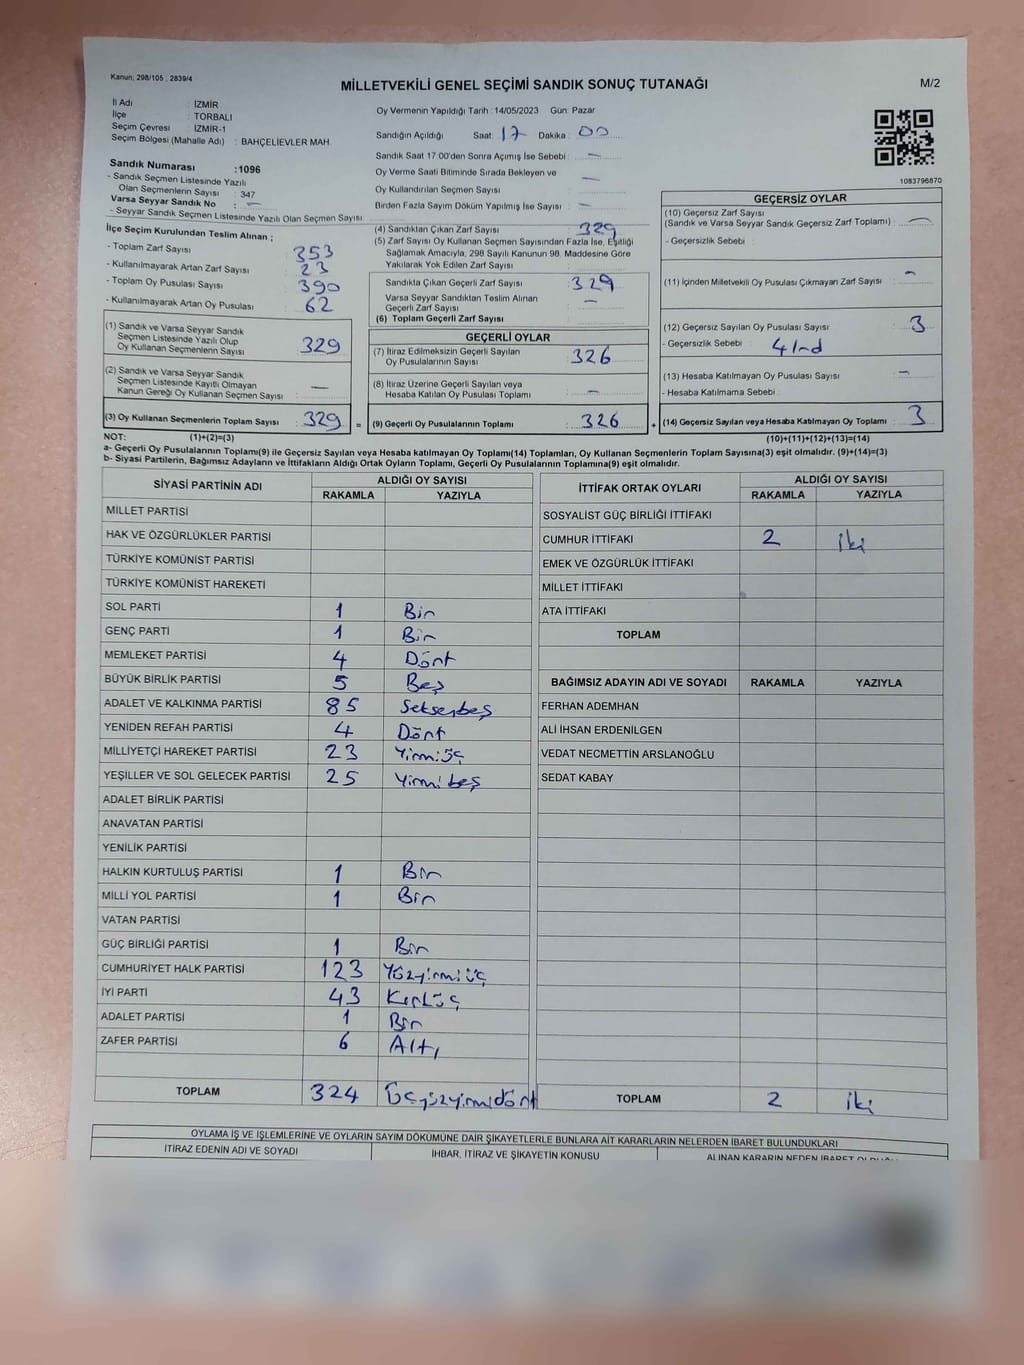 Kanun; 298/105 , 2839/4
MİLLETVEKİLİ GENEL SEÇİMİ SANDIK SONUÇ TUTANAĞI
M/2
İl Adı : İZMİR
İlçe : TORBALI
Seçim Çevresi : İZMİR-1
Seçim Bölgesi (Mahalle Adı) : BAHÇELİEVLER MAH.
Sandık Numarası :1096
- Sandık Seçmen Listesinde Yazılı
Olan Seçmenlerin Sayısı : 347
Varsa Seyyar Sandık No : —
- Seyyar Sandık Seçmen Listesinde Yazılı Olan Seçmen Sayısı
İlçe Seçim Kurulundan Teslim Alınan ;
- Toplam Zarf Sayısı : 353
- Kullanılmayarak Artan Zarf Sayısı : 23
- Toplam Oy Pusulası Sayısı : 390
- Kullanılmayarak Artan Oy Pusulası : 62
(1) Sandık ve Varsa Seyyar Sandık
Seçmen Listesinde Yazılı Olup
Oy Kullanan Seçmenlerin Sayısı : 329
(2) Sandık ve Varsa Seyyar Sandık
Seçmen Listesinde Kayıtlı Olmayan
Kanun Gereği Oy Kullanan Seçmen Sayısı : —
(3) Oy Kullanan Seçmenlerin Toplam Sayısı : 329 =
Oy Vermenin Yapıldığı Tarih :14/05/2023 Gün: Pazar
Sandığın Açıldığı Saat: 17 Dakika : 00
Sandık Saat 17:00'den Sonra Açımış İse Sebebi : —
Oy Verme Saati Bitiminde Sırada Bekleyen ve
Oy Kullandırılan Seçmen Sayısı : —
Birden Fazla Sayım Döküm Yapılmış İse Sayısı : —
(4) Sandıktan Çıkan Zarf Sayısı : 329
(5) Zarf Sayısı Oy Kullanan Seçmen Sayısından Fazla İse, Eşitliği
Sağlamak Amacıyla, 298 Sayılı Kanunun 98. Maddesine Göre
Yakılarak Yok Edilen Zarf Sayısı :
Sandıkta Çıkan Geçerli Zarf Sayısı : 329
Varsa Seyyar Sandıktan Teslim Alınan
Geçerli Zarf Sayısı : —
(6) Toplam Geçerli Zarf Sayısı :
GEÇERLİ OYLAR
(7) İtiraz Edilmeksizin Geçerli Sayılan
Oy Pusulalarının Sayısı : 326
(8) İtiraz Üzerine Geçerli Sayılan veya
Hesaba Katılan Oy Pusulası Toplamı : —
(9) Geçerli Oy Pusulalarının Toplamı : 326 +
1083796870
GEÇERSİZ OYLAR
(10) Geçersiz Zarf Sayısı
(Sandık ve Varsa Seyyar Sandık Geçersiz Zarf Toplamı) : —
- Geçersizlik Sebebi :
(11) İçinden Milletvekili Oy Pusulası Çıkmayan Zarf Sayısı : -
(12) Geçersiz Sayılan Oy Pusulası Sayısı : 3
- Geçersizlik Sebebi :
(13) Hesaba Katılmayan Oy Pusulası Sayısı : —
- Hesaba Katılmama Sebebi :
(14) Geçersiz Sayılan veya Hesaba Katılmayan Oy Toplamı : 3
NOT: (1)+(2)=(3)
(10)+(11)+(12)+(13)=(14)
a- Geçerli Oy Pusulalarının Toplamı(9) ile Geçersiz Sayılan veya Hesaba katılmayan Oy Toplamı(14) Toplamları, Oy Kullanan Seçmenlerin Toplam Sayısına(3) eşit olmalıdır. (9)+(14)=(3)
b- Siyasi Partilerin, Bağımsız Adayların ve İttifakların Aldığı Ortak Oyların Toplamı, Geçerli Oy Pusulalarının Toplamına(9) eşit olmalıdır.
SİYASİ PARTİNİN ADI ALDIĞI OY SAYISI
RAKAMLA YAZIYLA
MİLLET PARTİSİ
HAK VE ÖZGÜRLÜKLER PARTİSİ
TÜRKİYE KOMÜNİST PARTİSİ
TÜRKİYE KOMÜNİST HAREKETİ
SOL PARTİ 1 Bir
GENÇ PARTİ 1 Bir
MEMLEKET PARTİSİ 4 Dört
BÜYÜK BİRLİK PARTİSİ 5 Beş
ADALET VE KALKINMA PARTİSİ 85 Seksenbeş
YENİDEN REFAH PARTİSİ 4 Dört
MİLLİYETÇİ HAREKET PARTİSİ 23 Yirmiüç
YEŞİLLER VE SOL GELECEK PARTİSİ 25 Yirmibeş
ADALET BİRLİK PARTİSİ
ANAVATAN PARTİSİ
YENİLİK PARTİSİ
HALKIN KURTULUŞ PARTİSİ 1 Bir
MİLLİ YOL PARTİSİ 1 Bir
VATAN PARTİSİ
GÜÇ BİRLİĞİ PARTİSİ 1 Bir
CUMHURİYET HALK PARTİSİ 123 Yüzyirmiüç
İYİ PARTİ 43 Kırküç
ADALET PARTİSİ 1 Bir
ZAFER PARTİSİ 6 Altı
TOPLAM 324 Üçyüzyirmidört
İTTİFAK ORTAK OYLARI ALDIĞI OY SAYISI
RAKAMLA YAZIYLA
SOSYALİST GÜÇ BİRLİĞİ İTTİFAKI
CUMHUR İTTİFAKI 2 iki
EMEK VE ÖZGÜRLÜK İTTİFAKI
MİLLET İTTİFAKI
ATA İTTİFAKI
TOPLAM
BAĞIMSIZ ADAYIN ADI VE SOYADI RAKAMLA YAZIYLA
FERHAN ADEMHAN
ALİ İHSAN ERDENİLGEN
VEDAT NECMETTİN ARSLANOĞLU
SEDAT KABAY
TOPLAM 2 iki
OYLAMA İŞ VE İŞLEMLERİNE VE OYLARIN SAYIM DÖKÜMÜNE DAİR ŞİKAYETLERLE BUNLARA AİT KARARLARIN NELERDEN İBARET BULUNDUKLARI
İTİRAZ EDENİN ADI VE SOYADI İHBAR, İTİRAZ VE ŞİKAYETİN KONUSU ALINAN KARARIN NEDEN İBARET